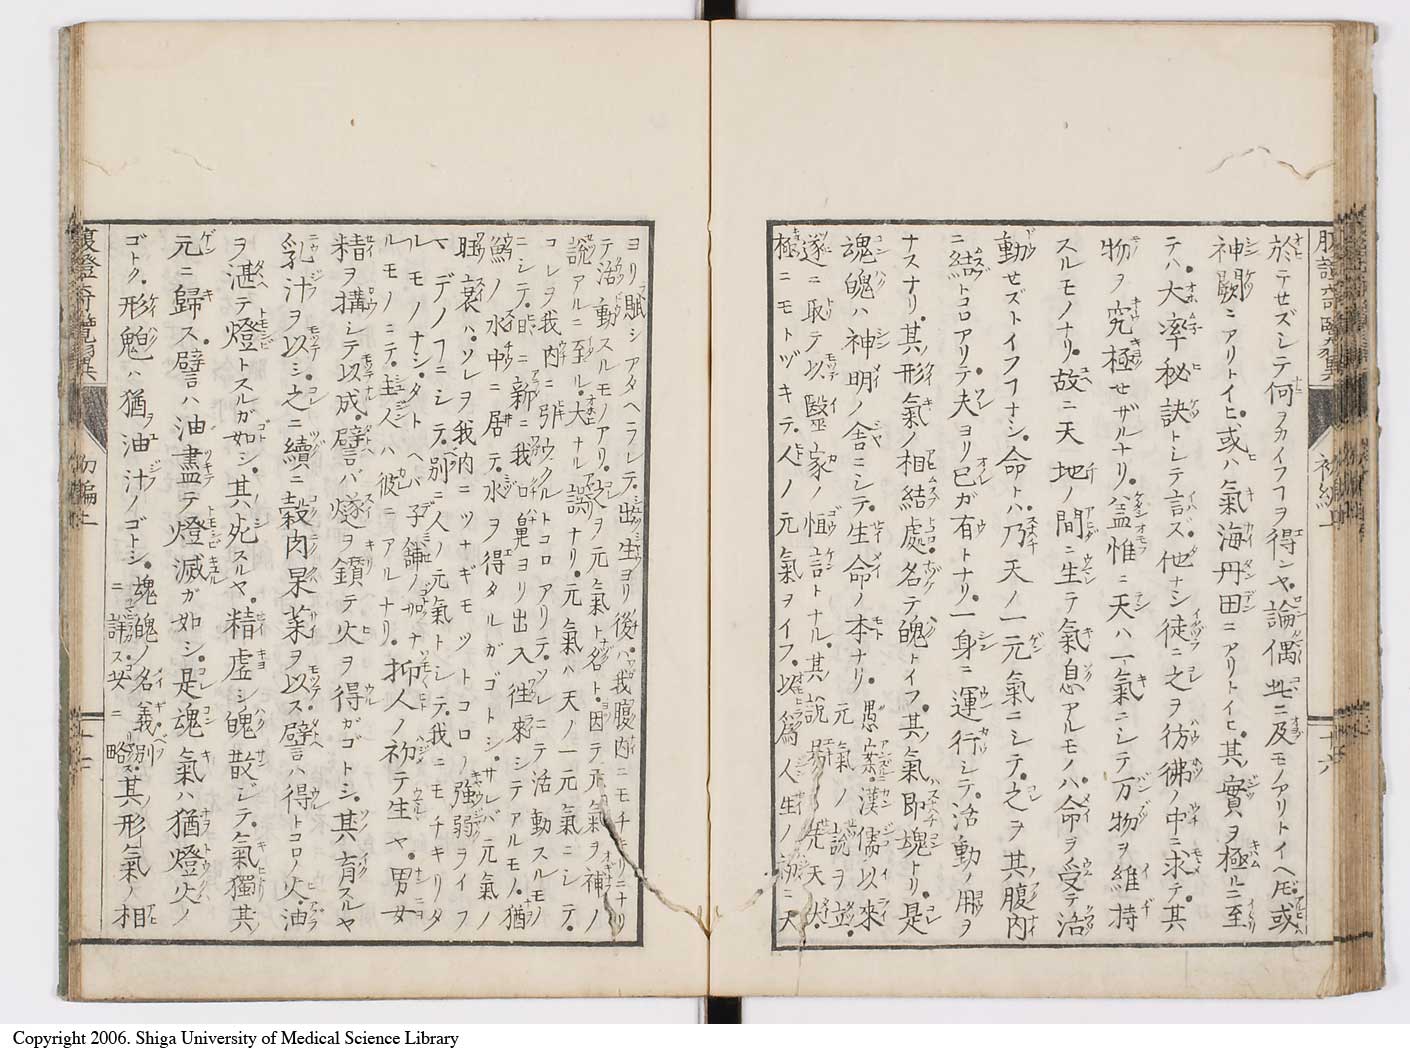 於テセズシテ何ヲカイフコヲ得ンヤ論偶此ニ及モノアリトイヘ𪜈或
神闕ニアリトイヒ或ハ氣海丹田ニアリトイヒ其實ヲ極ルニ至
テハ大率秘訣トシテ言ス他ナシ徒ニ之ヲ彷彿ノ中ニ求テ其
物ヲ究極セザルナリ蓋惟ニ天ハ一氣ニシテ万物ヲ維持
スルモノナリ故ニ天地ノ間ニ生テ氣息アルモノハ命ヲ受テ活
動セズトイフコナシ命トハ乃天ノ一元氣ニシテ之ヲ其腹内
ニ結トコロアリテ夫ヨリ己ガ有トナリ一身ニ運行シテ活動ノ用ヲ
ナスナリ其形氣ノ相結處名テ魄トイフ其氣即魂トリ是
魂魄ハ神明ノ舎ニシテ生命ノ本ナリ愚案漢儒以來元氣ノ説ヲ立
遂ニ取テ以醫家ノ恒言トナル其説
極ニモトヅキテ人ノ元氣ヲイフ以爲人生ノ初ニ天
ヨリ賦シアタヘラレテ出生ヨリ後ハ我腹内ニモチキリニナリ
テ活動スルモノアリ之ヲ元氣ト名ト因テ元氣ヲ補ノ
説アルニ至ル大ナル誤ナリ元氣ハ天ノ一元氣ニシテ
コレヲ我内ニ引ウクルトコロアリテソレニテ活動スルモノ
ニシテ時ニ新ニ我口鼻ヨリ出入往來シテアルモノ猶
鱗ノ水中ニ居テ水ヲ得タルガゴトシサレバ元氣ノ
旺衰ハソレヲ我内ニツナギモツトコロノ強弱ヲイフ
マデノコニシテ別ニ人ノ元氣トシテ我ニモチキリタ
ルモノナシタトヘバ子鋪ノ如
ルモノニテ主人ハ彼ニアルナリ抑人ノ初テ生ヤ男女
精ヲ搆シテ以成譬バ燧ヲ鑚テ火ヲ得ガゴトシ其育スルヤ
乳汁ヲ以シ之ニ續ニ穀肉果菜ヲ以ス譬ハ得トコロノ火油
ヲ湛テ燈トスルガ如シ其死スルヤ精虚シ魄散ジテ氣獨其
元ニ歸ス譬ハ油盡テ燈滅ガ如シ是魂氣ハ猶燈火ノ
ゴトク形魄ハ猶油汁ノゴトシ魂魄ノ名義別ニ詳ス玆ニ略ス其形氣ノ相
腹證奇覽翼
初編上
十六